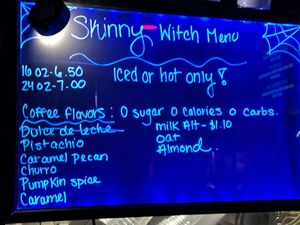 Skinny Witch Menu
16 oz-6.50
24 oz-7.00
Iced or hot only!
Coffee flavors: 0 sugar 0 calories 0 carbs.
Dulce de leche
Pistachio
Caramel pecan
Churro
Pumpkin spice
Caramel
milk Alt-$1.10
oat
Almond